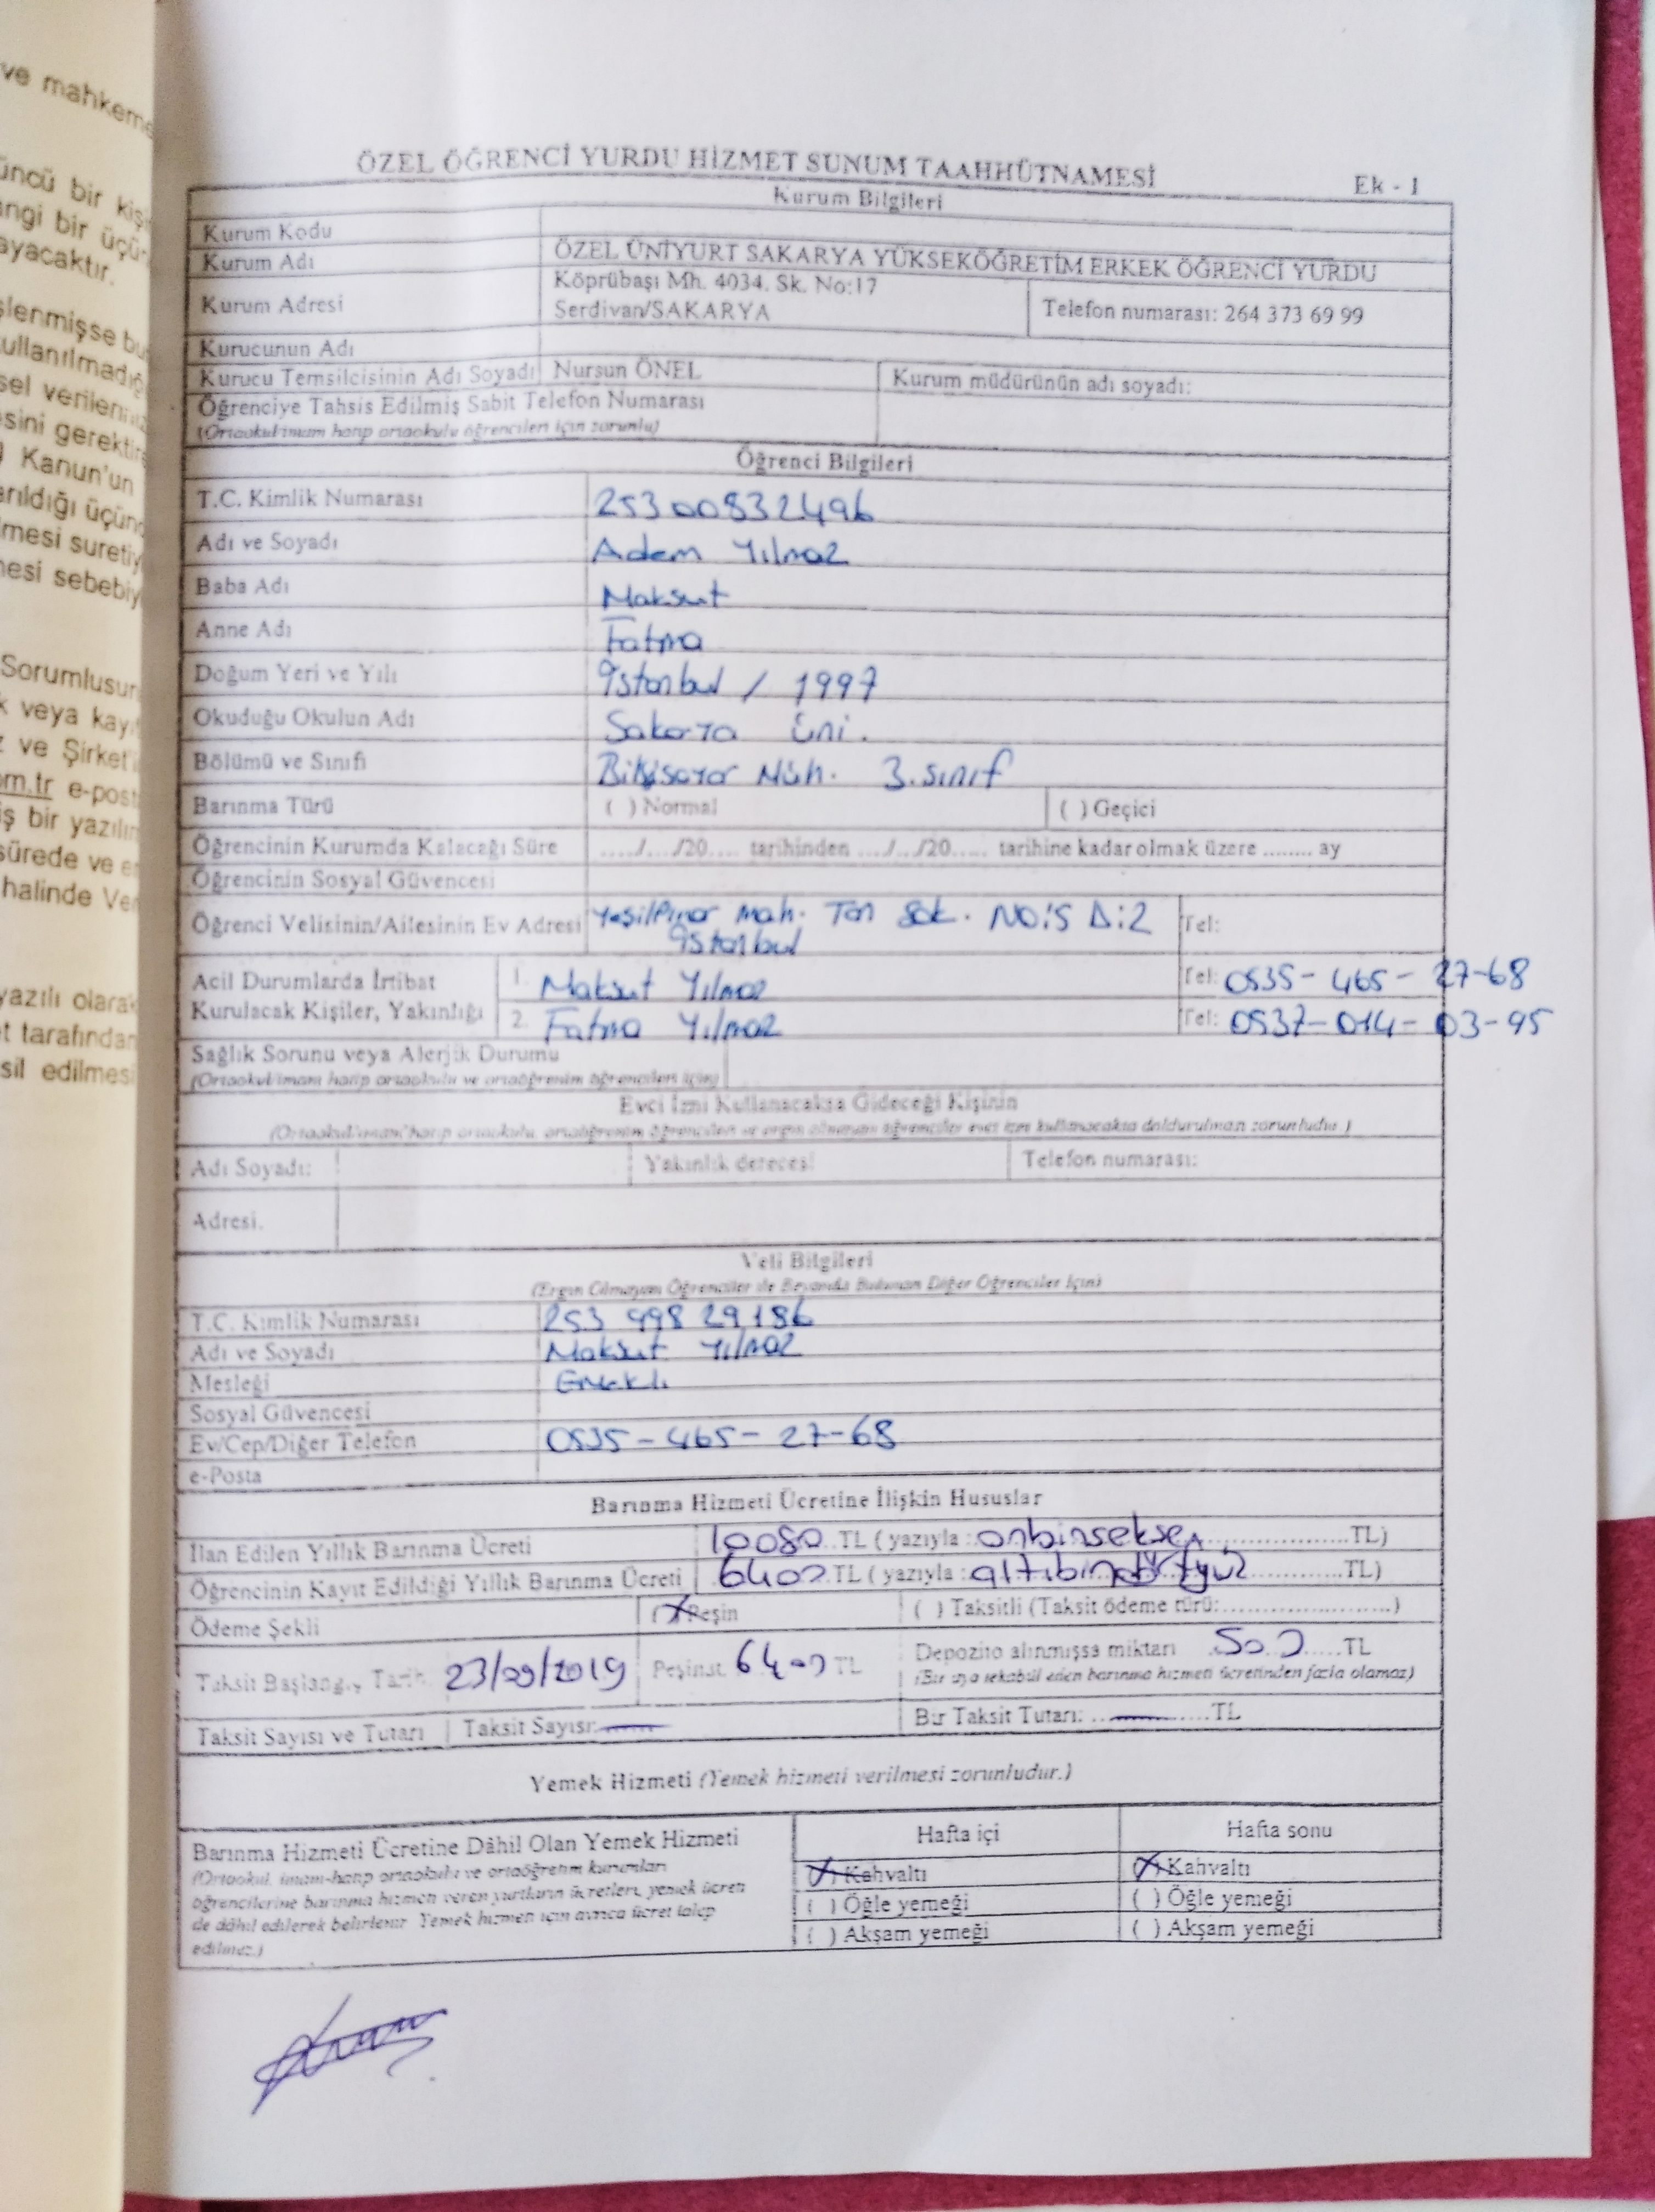 ve mahkeme
üncü bir kişi
angi bir üçün
ayacaktır.
şlenmişse bu
ullanılmadığı
sel verileriniz
esini gerektire
Kanun'un
arıldığı üçün
mesi suretiy
nesi sebebiy
Sorumlusun
k veya kayıt
z ve Şirket'i
om.tr e-post
iş bir yazılım
sürede ve en
halinde Ver
yazılı olarak
t tarafından
sil edilmesi
ÖZEL ÖĞRENCİ YURDU HİZMET SUNUM TAAHHÜTNAMESİ Ek - 1
Kurum Bilgileri
Kurum Kodu
Kurum Adı ÖZEL ÜNİYURT SAKARYA YÜKSEKÖĞRETİM ERKEK ÖĞRENCİ YURDU
Kurum Adresi Köprübaşı Mh. 4034. Sk. No:17
Serdivan/SAKARYA Telefon numarası: 264 373 69 99
Kurucunun Adı
Kurucu Temsilcisinin Adı Soyadı Nursun ÖNEL Kurum müdürünün adı soyadı:
Öğrenciye Tahsis Edilmiş Sabit Telefon Numarası
(Ortaokul/imam hatip ortaokulu öğrencileri için zorunlu)
Öğrenci Bilgileri
T.C. Kimlik Numarası 25300832496
Adı ve Soyadı Adem Yılmaz
Baba Adı Maksut
Anne Adı Fatma
Doğum Yeri ve Yılı İstanbul / 1997
Okuduğu Okulun Adı Sakarya Üni.
Bölümü ve Sınıfı Bilgisayar Müh. 3.sınıf
Barınma Türü ( ) Normal ( ) Geçici
Öğrencinin Kurumda Kalacağı Süre ...../..../20..... tarihinden ..../.../20..... tarihine kadar olmak üzere ........ ay
Öğrencinin Sosyal Güvencesi
Öğrenci Velisinin/Ailesinin Ev Adresi Yeşilpınar mah. Tan Sok. NO:5 D:2 Tel:
İstanbul
Acil Durumlarda İrtibat 1. Maksut Yılmaz Tel: 0535-465-27-68
Kurulacak Kişiler, Yakınlığı 2. Fatma Yılmaz Tel: 0537-014-03-95
Sağlık Sorunu veya Alerjik Durumu
(Ortaokul/imam hatip ortaokulu ve ortaöğrenim öğrencileri için)
Evci İzni Kullanacaksa Gideceği Kişinin
(Ortaokul/imam hatip ortaokulu, ortaöğrenim öğrencileri ve ergin olmayan öğrenciler evci izni kullanacaksa doldurulması zorunludur.)
Adı Soyadı: Yakınlık derecesi Telefon numarası:
Adresi.
Veli Bilgileri
(Ergin Olmayan Öğrenciler ile Beyanda Bulunan Diğer Öğrenciler İçin)
T.C. Kimlik Numarası 253 998 29186
Adı ve Soyadı Maksut Yılmaz
Mesleği Emekli
Sosyal Güvencesi
Ev/Cep/Diğer Telefon 0535-465-27-68
e-Posta
Barınma Hizmeti Ücretine İlişkin Hususlar
İlan Edilen Yıllık Barınma Ücreti 10080 TL ( yazıyla : onbinseksen ...................TL)
Öğrencinin Kayıt Edildiği Yıllık Barınma Ücreti 6400 TL ( yazıyla : altıbindörtyüz ...............TL)
Ödeme Şekli (X) Peşin ( ) Taksitli (Taksit ödeme türü:........................)
Taksit Başlangıç Tarihi 23/09/2019 Peşinat 6400 TL Depozito alınmışsa miktarı 500......TL
(Bir aya tekabül eden barınma hizmeti ücretinden fazla olamaz)
Taksit Sayısı ve Tutarı Taksit Sayısı: Bir Taksit Tutarı: ...............TL
Yemek Hizmeti (Yemek hizmeti verilmesi zorunludur.)
Barınma Hizmeti Ücretine Dâhil Olan Yemek Hizmeti Hafta içi Hafta sonu
(Ortaokul, imam-hatip ortaokulu ve ortaöğretim kurumları (X) Kahvaltı (X) Kahvaltı
öğrencilerine barınma hizmeti veren yurtların ücretleri, yemek ücreti ( ) Öğle yemeği ( ) Öğle yemeği
de dâhil edilerek belirlenir. Yemek hizmeti için ayrıca ücret talep ( ) Akşam yemeği ( ) Akşam yemeği
edilmez.)